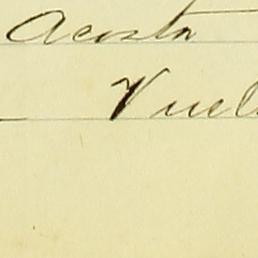 Acosta
Vuel